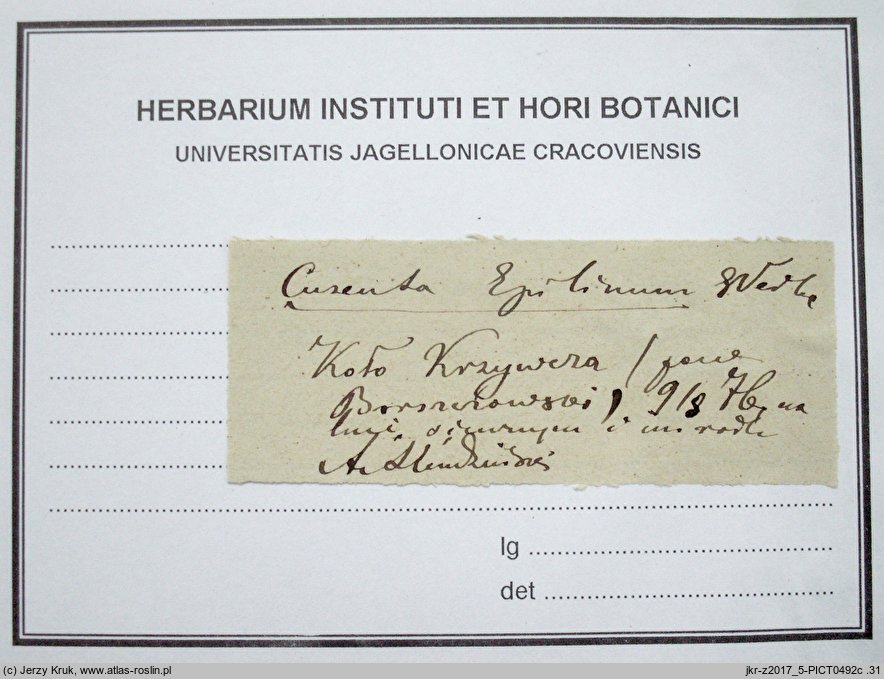 HERBARIUM INSTITUTI ET HORI BOTANICI
UNIVERSITATIS JAGELLONICAE CRACOVIENSIS
Cuscuta Epilinum Weihe
Koło Krzywcza / pow
Borszczowski) 9/8 76, na
lnie i
A. Ślendziński
lg
det
(c) Jerzy Kruk, www.atlas-roslin.pl
jkr-z2017_5-PICT0492c .31